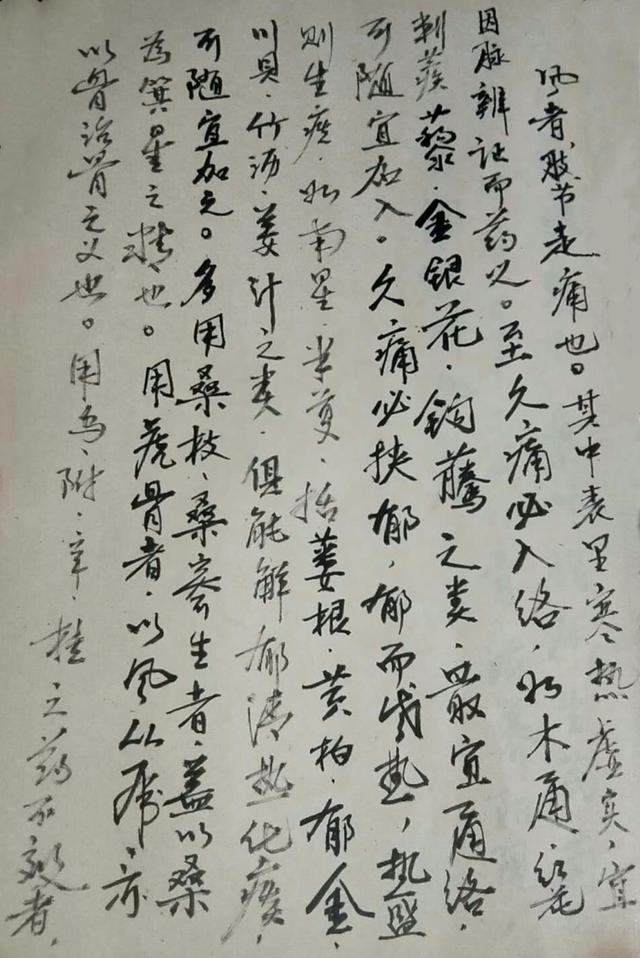 风者，肢节走痛也。其中表里寒热虚实，宜
因脉辨证而药之。至久痛必入络，如木通、红花
刺蒺藜、金银花、钩藤之类，最宜通络，
可随宜加入。久痛必挟郁，郁而成热，热盛
则生痰，如南星、半夏、括蒌根、黄柏、郁金、
川贝、竹沥、姜汁之类，俱能解郁清热化痰，
可随宜加之。多用桑枝、桑寄生者，盖以桑
为箕星之精也。用虎骨者，以风从虎，亦
以骨治骨之义也。用乌、附、辛、桂之药不效者，